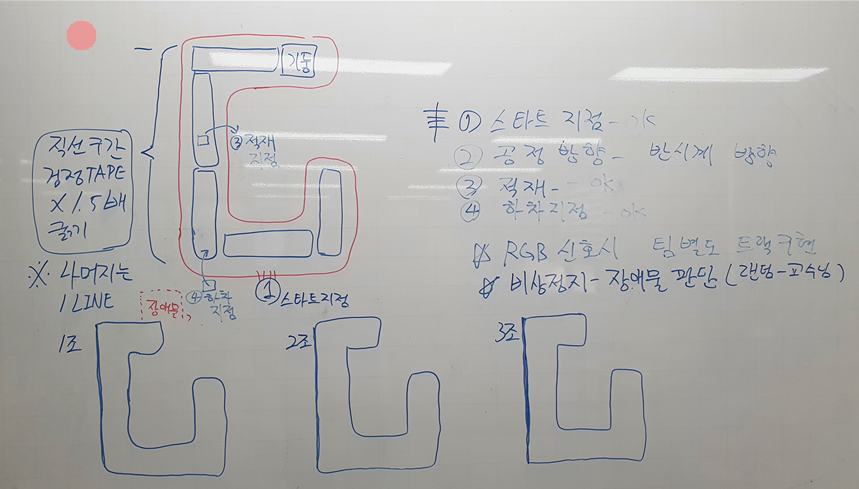 기둥
③ 적재
지점
직선구간
검정TAPE
X 1.5배
굵기
※ 나머지는
1 LINE
장애물
④ 하차
지점
① 스타트지점
① 스타트 지점 - OK
② 공정방향 - 반시계 방향
③ 적재 - OK
④ 하차지점 - OK
RGB 신호시 팀별도 트랙구현
비상정지 - 장애물 판단 (랜덤-교수님)
1조
2조
3조